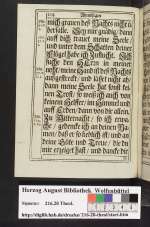 mich grauen des Nachts nicht ü-
berfalle. Sey mir gnädig; dann
auff dich trauet meine Seele
und unter dem Schatten deiner
Flügel habe ich Zuflucht. Ich
suche den HErrn in meiner
Noht / meine Hand ist des Nachts
außgereckt / und lässet nicht ab:
dann meine Seele hat sonst kei-
nen Trost / so weiß ich auch von
keinem Helffer / im Himmel und
auff Erden / dann von dir allein.
Zu Mitternacht / so ich erwa-
che / gedencke ich an deinen Na-
men / daß er so lieblich ist / und an
deine Güte und Treue / die du
mir erzeiget hast / und dancke dir
Herzog August Bibliothek Wolfenbüttel
216.20 Theol.
http://diglib.hab.de/drucke/216-20-theol/start.htm